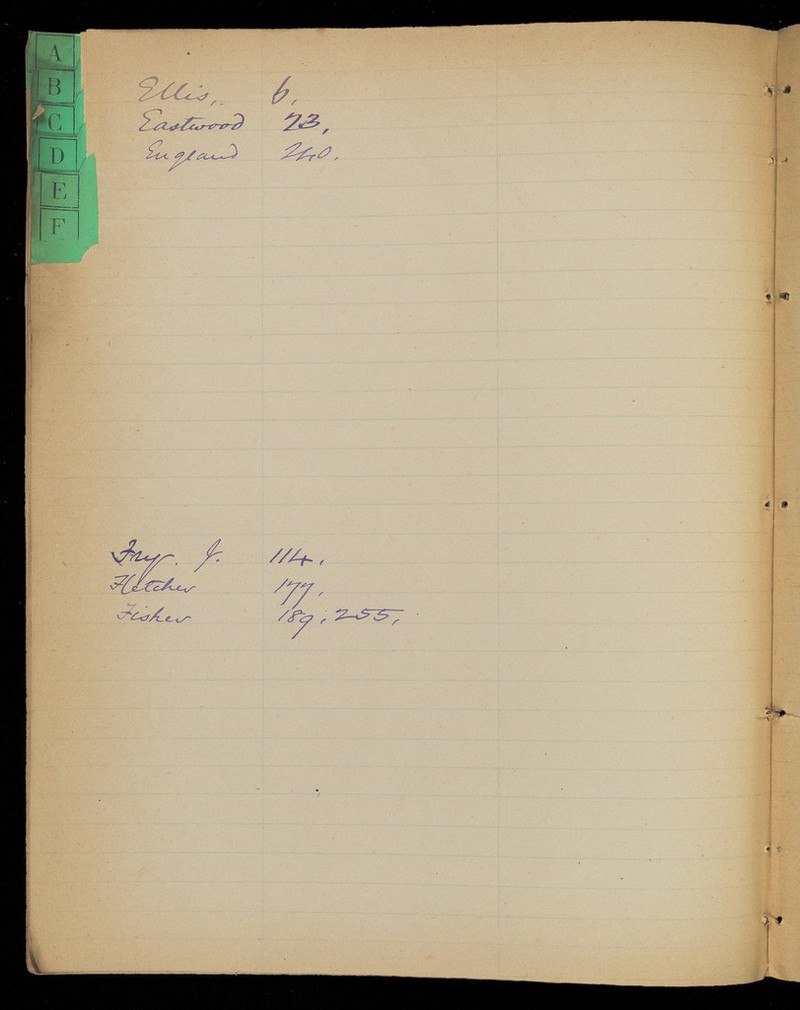 A
B
C
D
E
F
Ellis, 6,
Eastwood 73,
England 240.
Fry. J. 114,
Fletcher 177,
Fisher 189, 255,